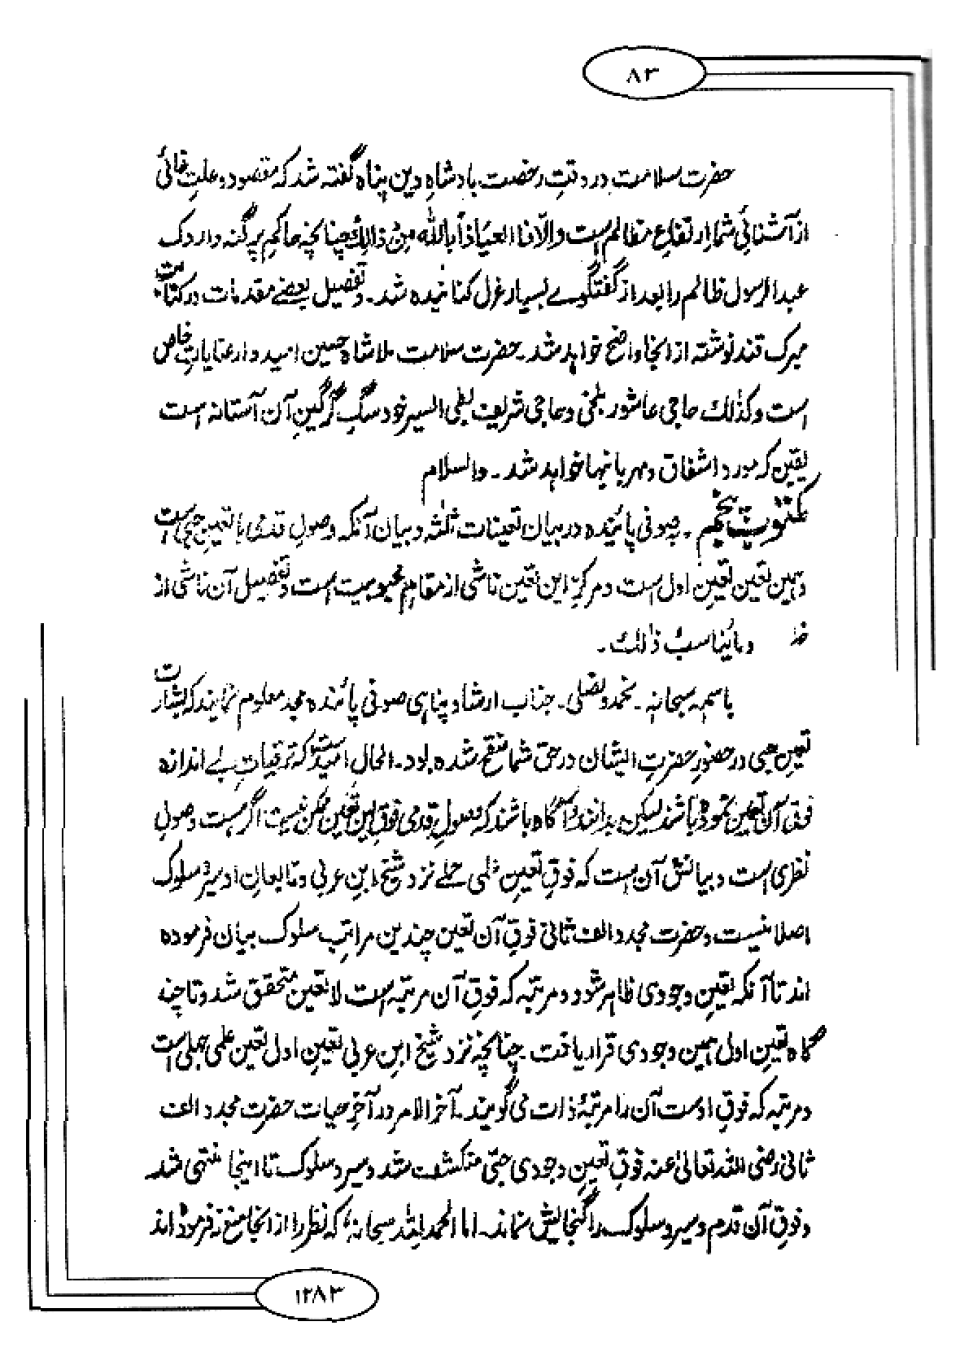 ۸۳
حضرت سلامت در وقتِ رخصت بادشاہِ دین پناہ گفتہ شد کہ مقصود و علتِ غائی
از آشنائیِ شما ارتفاعِ مظالم است والّا فالعیاذاً باللّٰه مِنْ ذالِكَ چنانچہ حاکمِ پرگنہ دار دک
عبدالرسول ظالم را بعد از گفتگوے بسیار عزل کنانیدہ شد۔ و تفصیل بعضے مقدمات در کتابت
میرک قند نوشتہ از انجا واضح خواہد شد۔ حضرت سلامت ملا شاہ حسین امیدوار عنایاتِ خاص
است وکذٰلك حاجی عاشور بلخی و حاجی شریف بطی السیر خود سگِ گرگینِ آن آستانہ است
یقین کہ مورد اشفاق و مہربانیہا خواہد شد۔ والسلام
مکتوب پنجم۔ بصوفی پائندہ در بیان تعینات ثلٰثہ و بیان آنکہ وصولِ قدمی تا تعینِ حبی است
و ہمین تعین تعینِ اول است و مرکز این تعین ناشی از مقامِ محبوبیت است و تفصیل آن ناشی از
و مایُناسبُ ذٰلك۔
باسمہٖ سبحانہٗ۔ نحمدہ و نصلی۔ جناب ارشاد پناہی صوفی پائندہ محمد معلوم نمایند کہ بشارت
تعینِ حبی در حضورِ حضرتِ ایشان در حق شما منقح شدہ بود۔ الحال امید کہ ترقیاتِ بے اندازہ
فوقِ آن تعین نمودہ باشند لیکن بدانند و آگاہ باشند کہ وصولِ قدمی فوقِ این تعین ممکن نیست اگر ہست وصولِ
نظری است و بیانش آن است کہ فوقِ تعینِ علمی جملے نزد شیخ ابن عربی و تابعانِ او سیر و سلوک
اصلا نیست و حضرت مجدد الف ثانی فوقِ آن تعین چندین مراتبِ سلوک بیان فرمودہ
اند تا آنکہ تعینِ وجودی ظاہر شود و مرتبہ کہ فوقِ آن مرتبہ است لاتعین متحقق شد و تا چند
گاہ تعینِ اول ہمین وجودی قرار یافت۔ چنانچہ نزد شیخ ابنِ عربی تعینِ اول تعین علمی جملی است
و مرتبہ کہ فوقِ اوست آن را مرتبۂ ذات می گویند۔ آخر الامر در آخرِ حیات حضرت مجدد الف
ثانی رضی اللہ تعالیٰ عنہ فوقِ تعینِ وجودی حبّی منکشف شد و سیر و سلوک تا اینجا منتہی شد
و فوقِ آن قدم و سیر و سلوک را گنجائش نماند۔ اما الحمد للّٰہ سبحانہٗ کہ نظر را از انجا منع نہ فرمودہ اند
۱۲۸۳